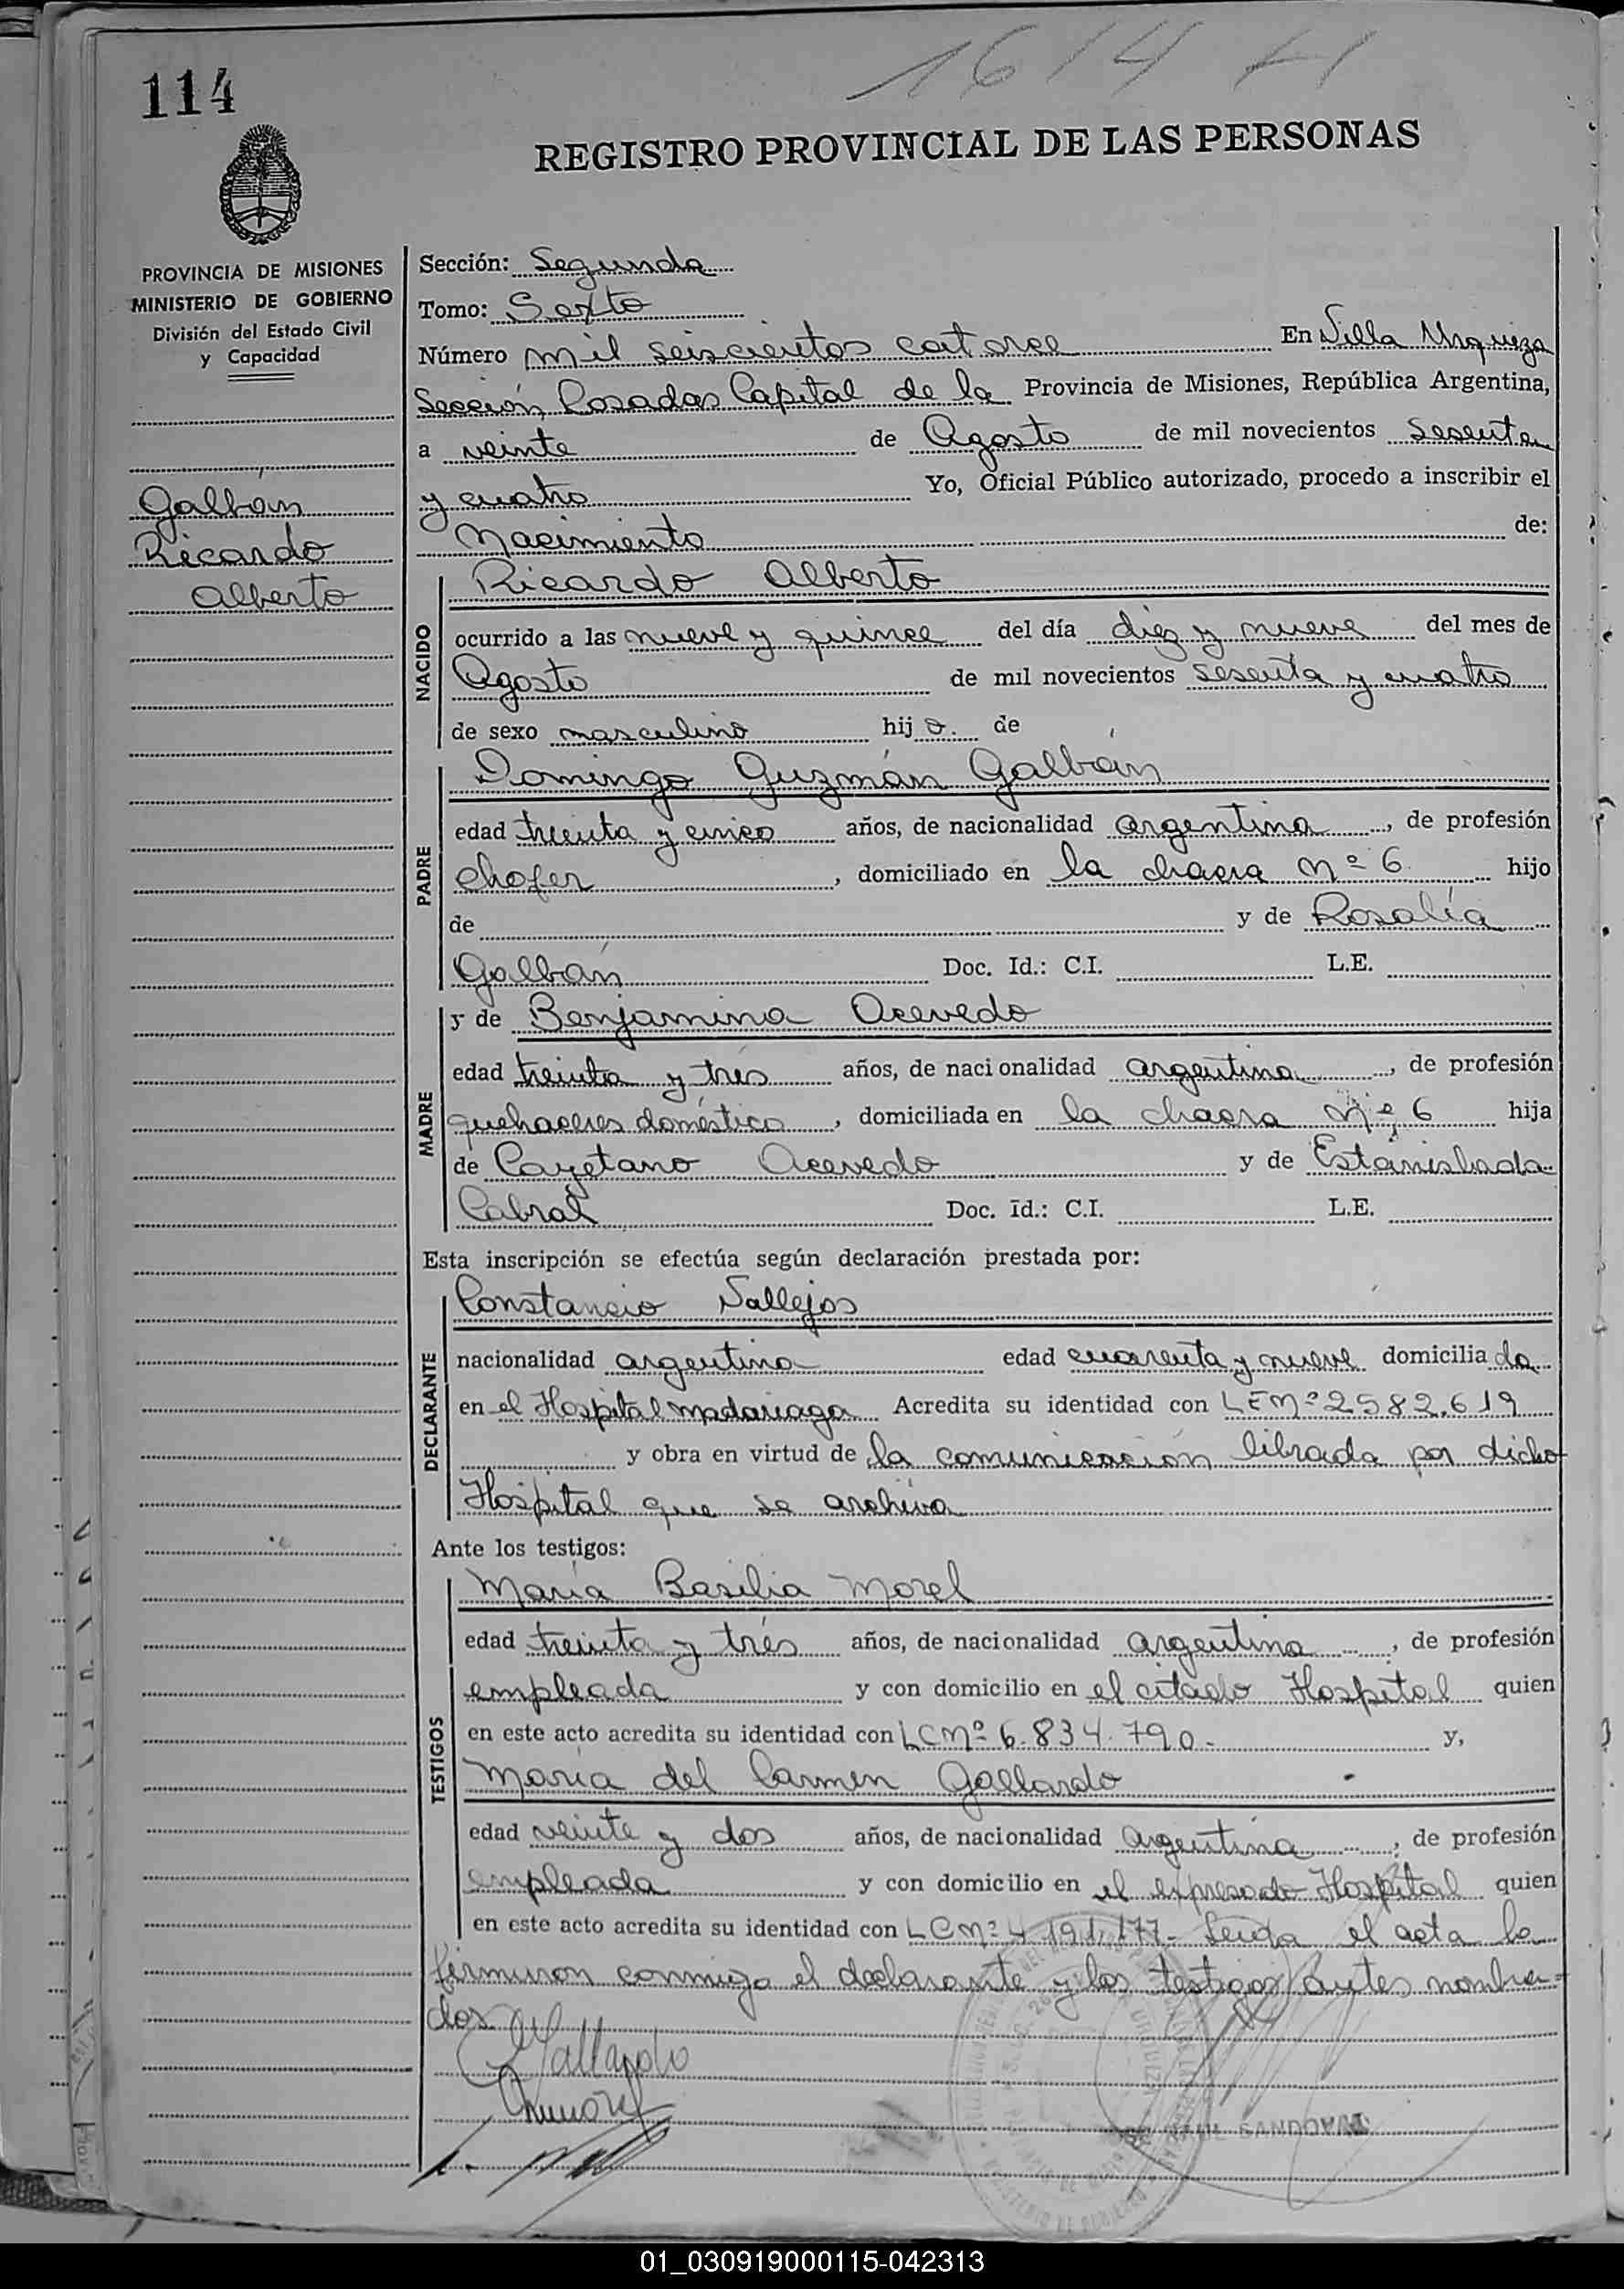 1614 H
114
REGISTRO PROVINCIAL DE LAS PERSONAS
PROVINCIA DE MISIONES
MINISTERIO DE GOBIERNO
División del Estado Civil
y Capacidad
Galbán
Ricardo
Alberto
Sección: Segunda
Tomo: Sexto
Número mil seiscientos catorce En Villa Urquiza
Sección Posadas Capital de la Provincia de Misiones, República Argentina,
a veinte de Agosto de mil novecientos sesenta
y cuatro Yo, Oficial Público autorizado, procedo a inscribir el
Nacimiento de:
NACIDO
Ricardo Alberto
ocurrido a las nueve y quince del día diez y nueve del mes de
Agosto de mil novecientos sesenta y cuatro
de sexo masculino hijo. de
PADRE
Domingo Guzmán Galbán
edad treinta y cinco años, de nacionalidad argentina, de profesión
chofer, domiciliado en la chacra Nº 6. hijo
de y de Rosalía
Galbán Doc. Id.: C.I. L.E.
MADRE
y de Benjamina Acevedo
edad treinta y tres años, de nacionalidad argentina, de profesión
quehaceres doméstico, domiciliada en la chacra Nº 6 hija
de Cayetano Acevedo y de Estanislada
Cabral Doc. Id.: C.I. L.E.
Esta inscripción se efectúa según declaración prestada por:
DECLARANTE
Constancio Vallejos
nacionalidad argentina edad cuarenta y nueve domiciliado
en el Hospital Madariaga Acredita su identidad con LE Nº 2582.619
y obra en virtud de la comunicación librada por dicho
Hospital que se archiva
Ante los testigos:
TESTIGOS
María Basilia Morel
edad treinta y tres años, de nacionalidad argentina, de profesión
empleada y con domicilio en el citado Hospital quien
en este acto acredita su identidad con LC Nº 6.834.790.- y,
María del Carmen Gallardo
edad veinte y dos años, de nacionalidad argentina, de profesión
empleada y con domicilio en el expresado Hospital quien
en este acto acredita su identidad con LC Nº 4 191.177- Leida el acta la
firmaron conmigo el declarante y los testigos antes nombra-
dos
Gallardo
Morel
RAUL SANDOVAL
01_030919000115-042313